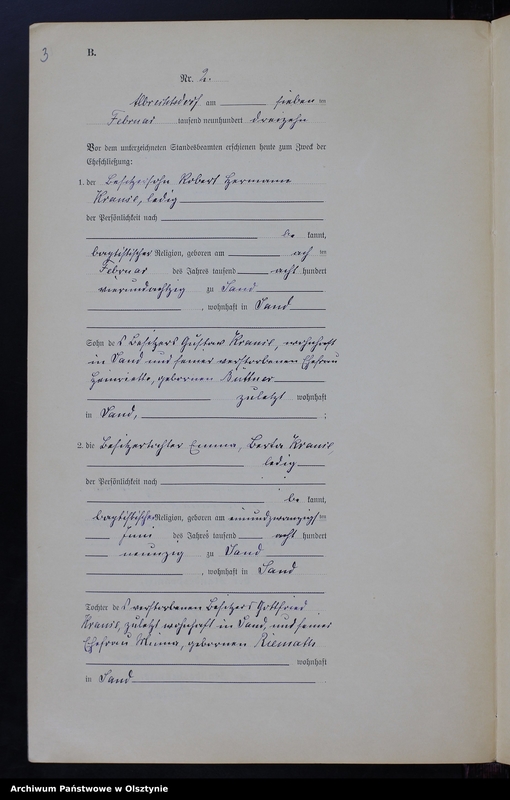 3
B.
Nr. 2.
Albrechtsdorf am sieben ten
Februar tausend neunhundert dreizehn
Vor dem unterzeichneten Standesbeamten erschienen heute zum Zweck der
Eheschließung:
1. der Besitzersohn Robert Hermann
ledig
der Persönlichkeit nach
be kannt,
baptistischer Religion, geboren am ach ten
Februar des Jahres tausend acht hundert
vierundachtzig zu Sand
, wohnhaft in Sand
Sohn des Besitzers Gustav wohnhaft
in Sand und seiner verstorbenen Ehefrau
Henriette, geborenen Büttner
zuletzt wohnhaft
in Sand, ;
2. die Besitzertochter Emma, Berta
ledig
der Persönlichkeit nach
be kannt,
baptistischer Religion, geboren am einundzwanzigsten
Juni des Jahres tausend acht hundert
neunzig zu Sand
, wohnhaft in Sand
Tochter des verstorbenen Besitzers Gottfried
zuletzt wohnhaft in Sand, und seiner
Ehefrau Minna, geborenen
wohnhaft
in Sand
Archiwum Państwowe w Olsztynie